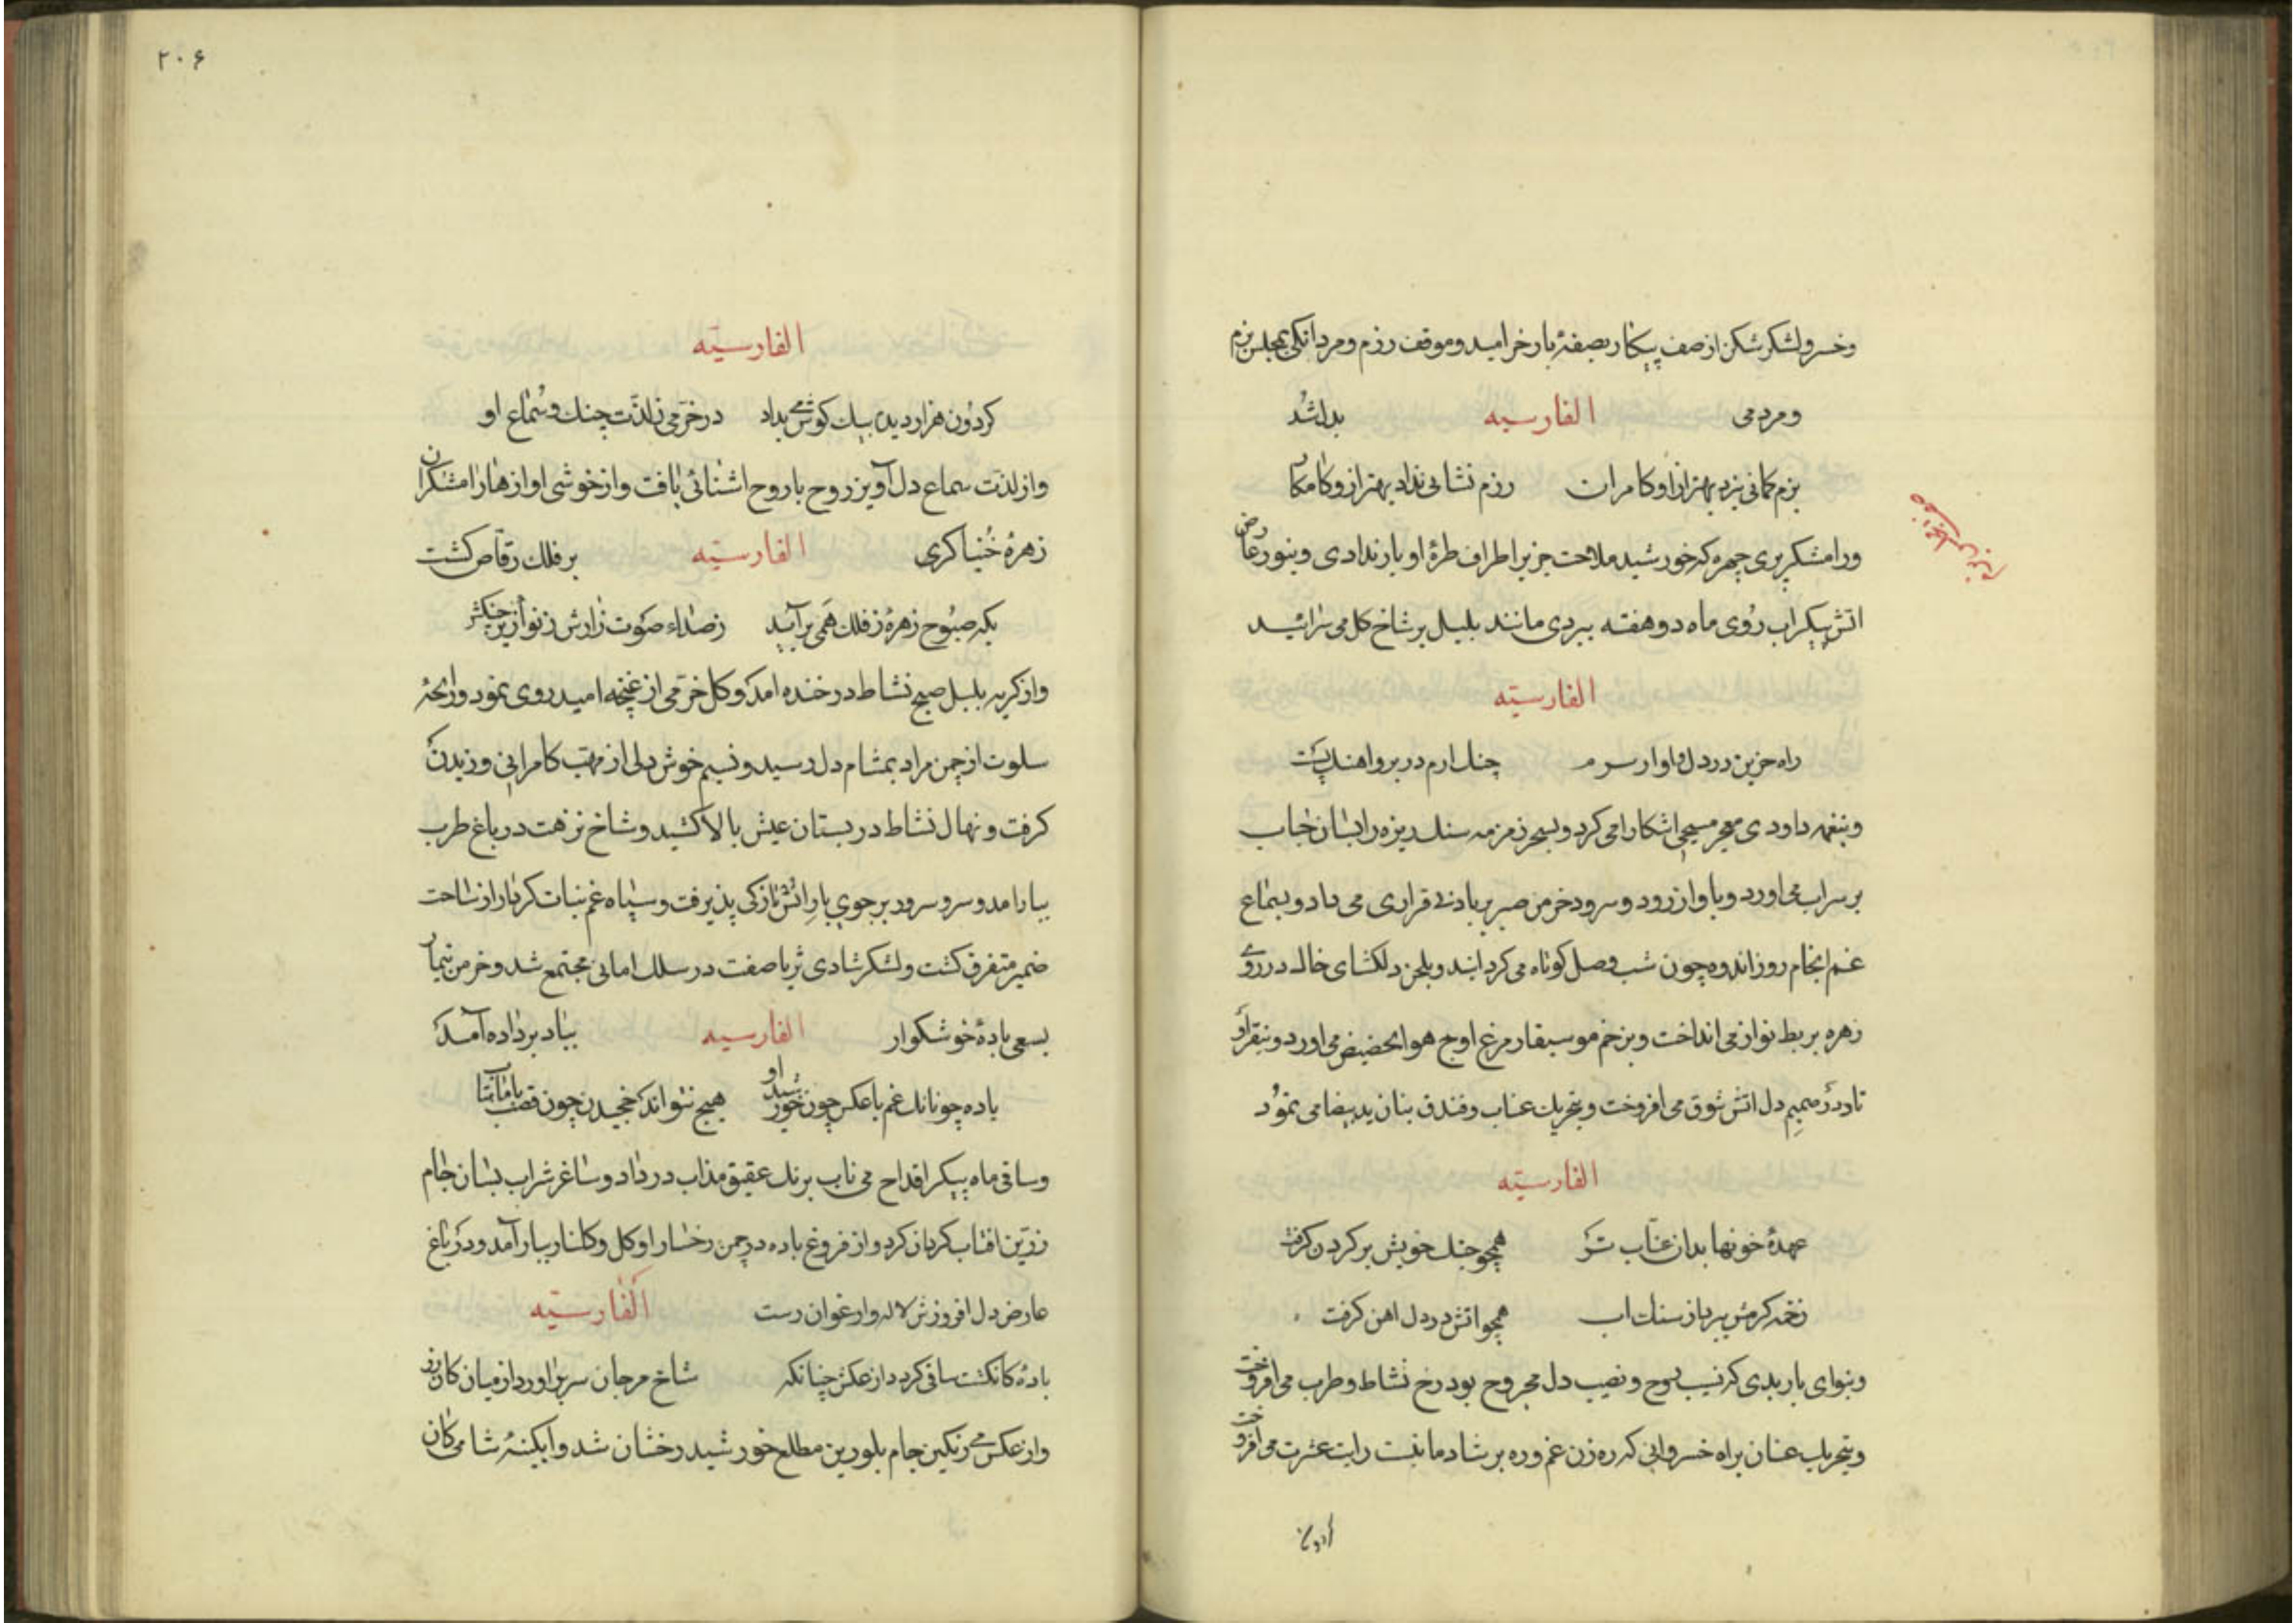 وخسرو لشکر شکن از صف پیکار بصفهٔ بار خرامید وموقف رزم ومردانکی بمجلس بزم
ومردمی الفارسیه بدل شد
بزم کمانی نزد بهتر ازو کامران رزم نشانی نداد بهتر ازو کامکار
ورامشکر پری چهره که خورشید ملاحت جز بر اطراف طرهٔ او بار ندادی وبنور عارض
اتش پیکر اب روی ماه دو هفته ببردی مانند بلبل بر شاخ کل می سرائید
الفارسیته
راه حزین در دل واوار سرم چنک ارم در بر واهنک پست
وبنغمه داودی معجز مسیحی اشکارا می کرد وبسحر زمزمه سنک ریزه را بسان حباب
بر سر اب می اورد وباواز رود وسرود خرمن صبر بر باد بی قراری می داد وبسماع
غم انجام روز اندوه چون شب وصل کوتاه می کردانید وبلحن دلکشای خاک در روی
زهره بربط نواز می انداخت وبزخم موسیقار مرغ از اوج هوا بحضیض می اورد وبنقر او
تار در صمیم دل اتش شوق می افروخت وبتحریک عناب وفندق بنان ید بیضا می نمود
الفارسیته
عهدهٔ خونها بدان عناب تر همچو چنک خویش بر کردن کرفت
زخمه کرمش ببرد از سنک اب همچو اتش در دل اهن کرفت
وبنوای باربدی که نسیب روح ونصیب دل مجروح بود رخ نشاط وطرب می افروخت
وبتحریک عنان براه خسروانی که ره زن غم وره بر شادمانیست رایت عشرت می افروخت
۲۰۶
الفارسیته
کردون هزار دیده بیک کوشمی بداد در خرمی ز لذت چنک وسماع او
واز لذت سماع دل آویز روح با روح اشنائی یافت واز خوشی اواز هزار رامشکران
زهرهٔ خنیاکری الفارسیته بر فلک رقاص کشت
بکه صبوح زهره ز فلک همی برآید ز صداء صوت زارش ز نواز زیر چنکش
واز کریه بلبل صبح نشاط در خنده امد وکل خرمی از غنچه امید روی نمود ورایحهٔ
سلوت از چمن مراد بمشام دل رسید ونسیم خوش دلی از مهب کامرانی وزیدن
کرفت ونهال نشاط در بستان عیش بالا کشید وشاخ نزهت در باغ طرب
ببار امد وسرو سرود بر جوی بار انس تازکی پذیرفت وسپاه غم بنات کردار از ساحت
ضمیر متفرق کشت ولشکر شادی ثریا صفت در سلک امانی مجتمع شد وخرمن تیمار
بسعی بادهٔ خوشکوار الفارسیه بباد بر داده آمد
باده چونانک غم با عکس چون خورشید او هیچ نتواند کخجیدن چون قصب با ماهتاب
وساقی ماه پیکر اقداح می ناب برنک عقیق مذاب در داد وساغر شراب بسان جام
زرین افتاب کردان کرد واز فروغ باده در چمن رخسار او کل وکلنار ببار آمد ودر باغ
عارض دل افروزش لاله وارغوان رست الفارسیته
بادهٔ کانکشت ساقی کردد از عکسش چنانکه شاخ مرجان سر براورد از میان کان زر
واز عکس می رنکین جام بلورین مطلع خورشید رخشان شد وابکینهٔ شامی کان